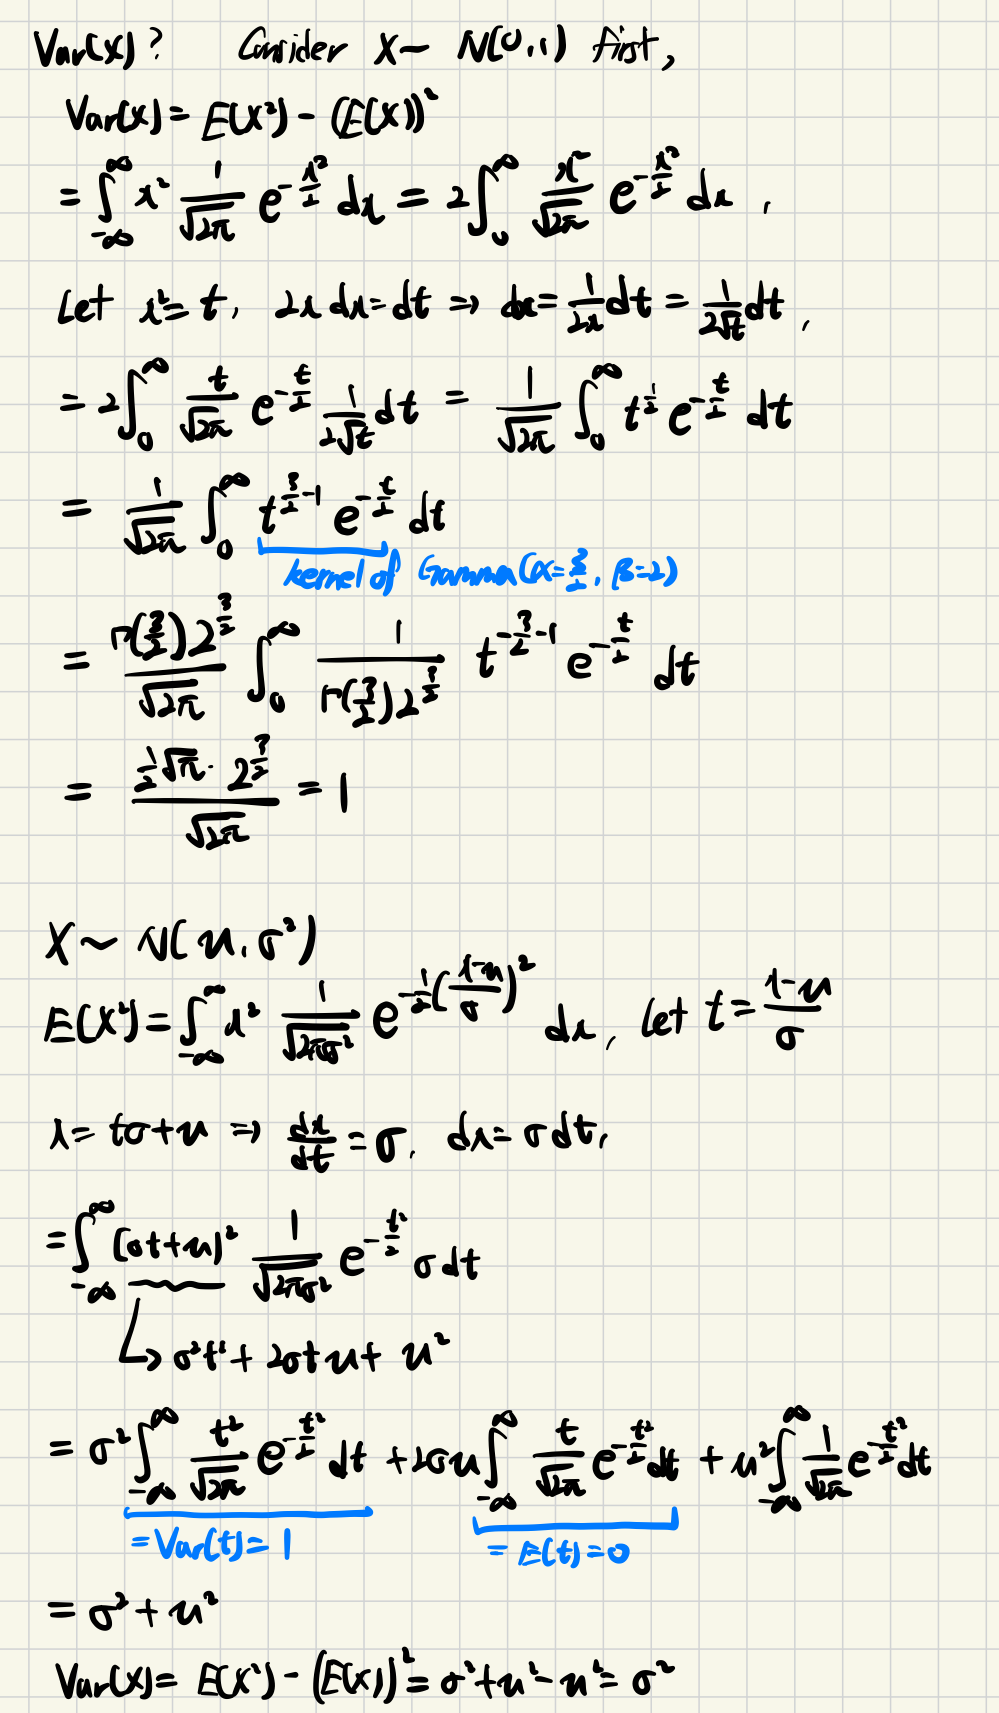 Var(X)? Consider X ~ N(0,1) first,
Var(X) = E(X²) - (E(X))²
= ∫_{-∞}^{∞} x² 1/√(2π) e^{-x²/2} dx = 2∫_0^∞ x²/√(2π) e^{-x²/2} dx,
Let x² = t, 2x dx = dt ⇒ dx = 1/(2x) dt = 1/(2√t) dt,
= 2∫_0^∞ t/√(2π) e^{-t/2} 1/(2√t) dt = 1/√(2π) ∫_0^∞ t^{1/2} e^{-t/2} dt
= 1/√(2π) ∫_0^∞ t^{3/2-1} e^{-t/2} dt
kernel of Gamma(α=3/2, β=2)
= Γ(3/2)2^{3/2}/√(2π) ∫_0^∞ 1/(Γ(3/2)2^{3/2}) t^{-3/2-1} e^{-t/2} dt
= (1/2 √π · 2^{3/2})/√(2π) = 1
X ~ N(μ, σ²)
E(X²) = ∫_{-∞}^{∞} x² 1/√(2πσ²) e^{-1/2((x-μ)/σ)²} dx, Let t = (x-μ)/σ
x = tσ+μ ⇒ dx/dt = σ, dx = σdt,
= ∫_{-∞}^{∞} (σt+μ)² 1/√(2πσ²) e^{-t²/2} σdt
↳ σ²t² + 2σtμ + μ²
= σ² ∫_{-∞}^{∞} t²/√(2π) e^{-t²/2} dt + 2σμ ∫_{-∞}^{∞} t/√(2π) e^{-t²/2} dt + μ² ∫_{-∞}^{∞} 1/√(2π) e^{-t²/2} dt
= Var(t) = 1 = E(t) = 0
= σ² + μ²
Var(X) = E(X²) - (E(X))² = σ²+μ²-μ² = σ²